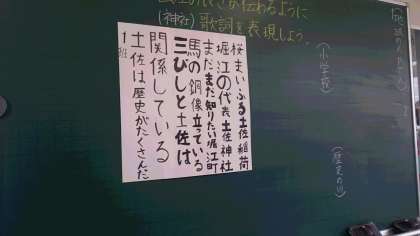 さが伝わるように
(神社)歌詞を表現しよう。
(小学校)
桜まいふる土佐稲荷
堀江の代表土佐神社
まだまだ知りたい堀江町
馬の銅像立っている
三びしと土佐は
関係している
土佐は歴史がたくさんだ
1班